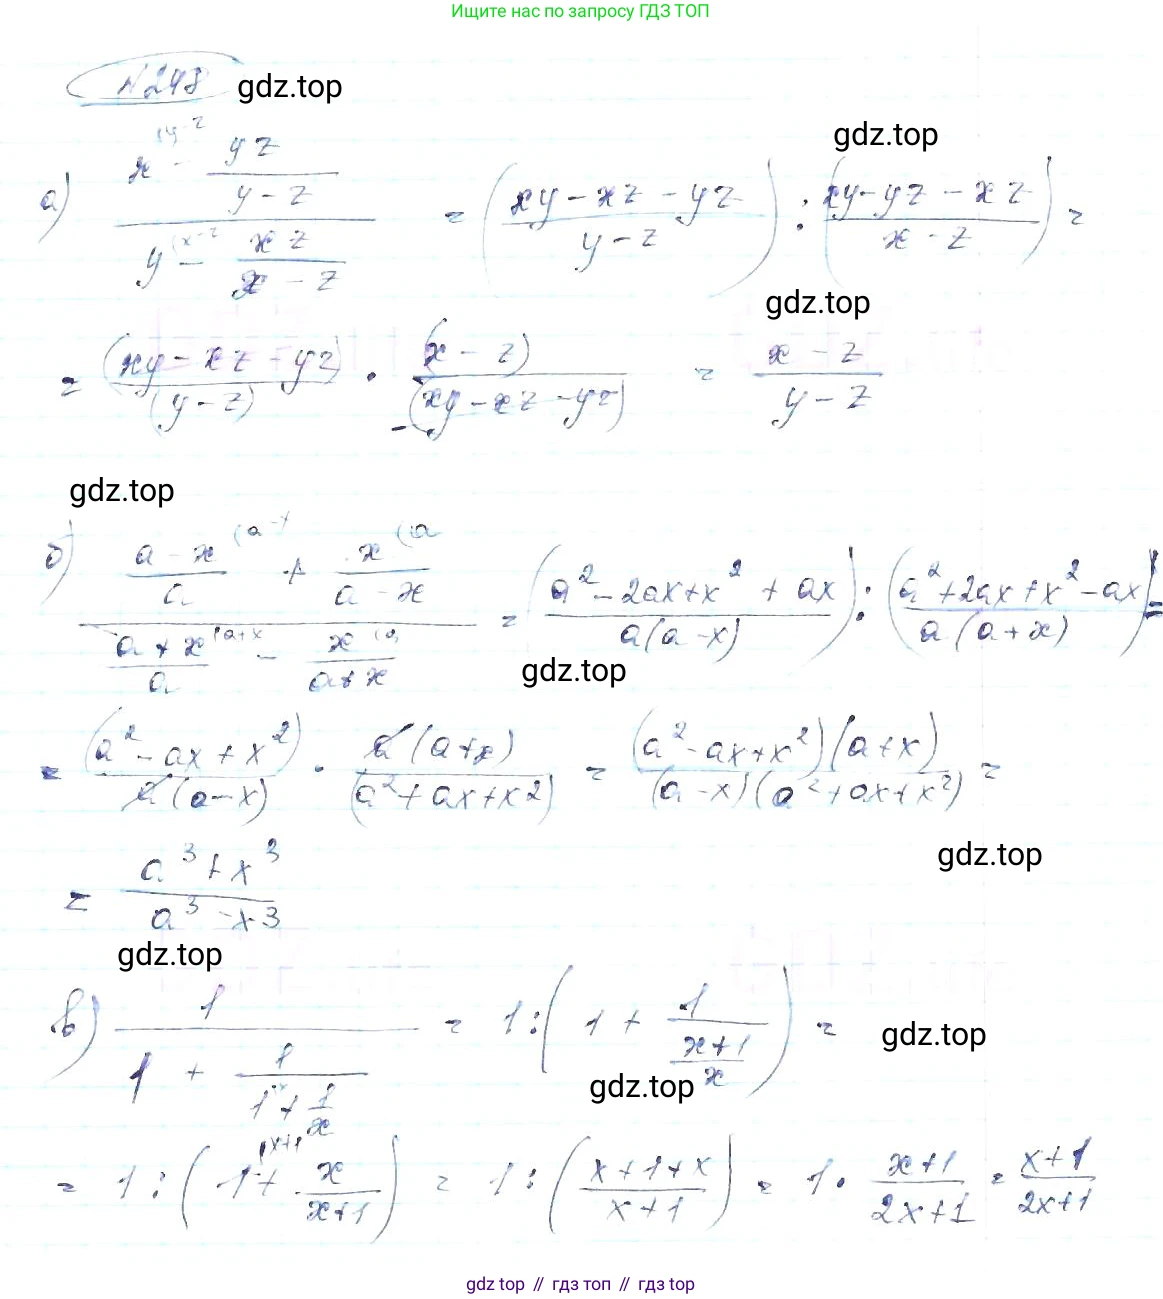 Ищите нас по запросу ГДЗ ТОП
№248 gdz.top
gdz.top
а) (x - yz/(y - z)) / (y - xz/(x - z)) = ((xy - xz - yz)/(y - z)) : ((xy - yz - xz)/(x - z)) =
gdz.top
= (xy - xz - yz)/(y - z) · (x - z)/(xy - xz - yz) = (x - z)/(y - z)
gdz.top
б) ((a - x)/a + x/(a - x)) / ((a + x)/a - x/(a + x)) = ((a² - 2ax + x² + ax)/(a(a - x))) : ((a² + 2ax + x² - ax)/(a(a + x))) =
gdz.top
= (a² - ax + x²)/(a(a - x)) · a(a + x)/(a² + ax + x²) = (a² - ax + x²)(a + x)/((a - x)(a² + ax + x²)) =
gdz.top
= (a³ + x³)/(a³ - x³)
gdz.top
в) 1/(1 + 1/(1 + 1/x)) = 1 : (1 + 1/((x + 1)/x)) =
gdz.top
gdz.top
= 1 : (1 + x/(x + 1)) = 1 : ((x + 1 + x)/(x + 1)) = 1 · (x + 1)/(2x + 1) = (x + 1)/(2x + 1)
gdz.top // гдз топ // гдз.top